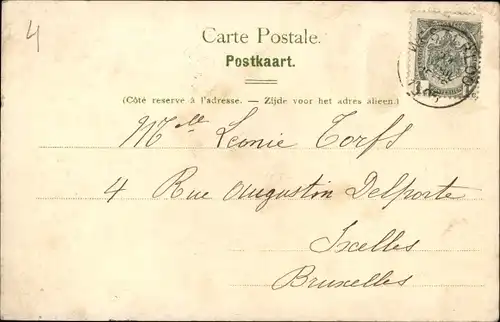 4
Carte Postale.
Postkaart.
(Côté reserve à l'adresse. — Zijde voor het adres alleen.)
Mlle Leonie Torfs
4 Rue Augustin Delporte
Ixelles
Bruxelles